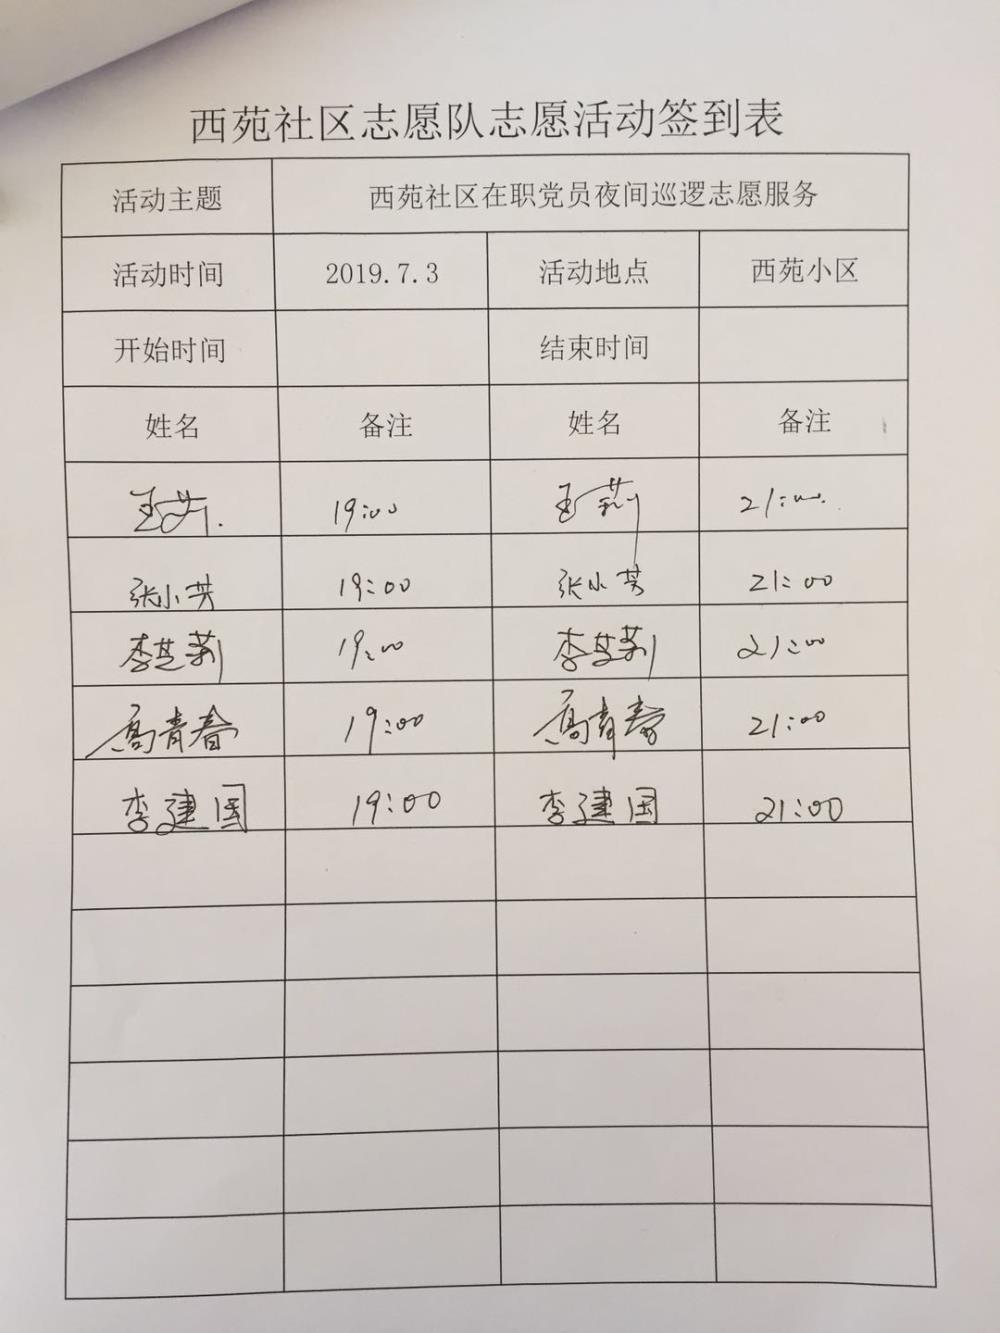 西苑社区志愿队志愿活动签到表
活动主题 西苑社区在职党员夜间巡逻志愿服务
活动时间 2019.7.3 活动地点 西苑小区
开始时间 结束时间
姓名 备注 姓名 备注
王莉 19:00 王莉 21:00
张小芳 19:00 张小芳 21:00
李芝莉 19:00 李芝莉 21:00
高青春 19:00 高青春 21:00
李建国 19:00 李建国 21:00